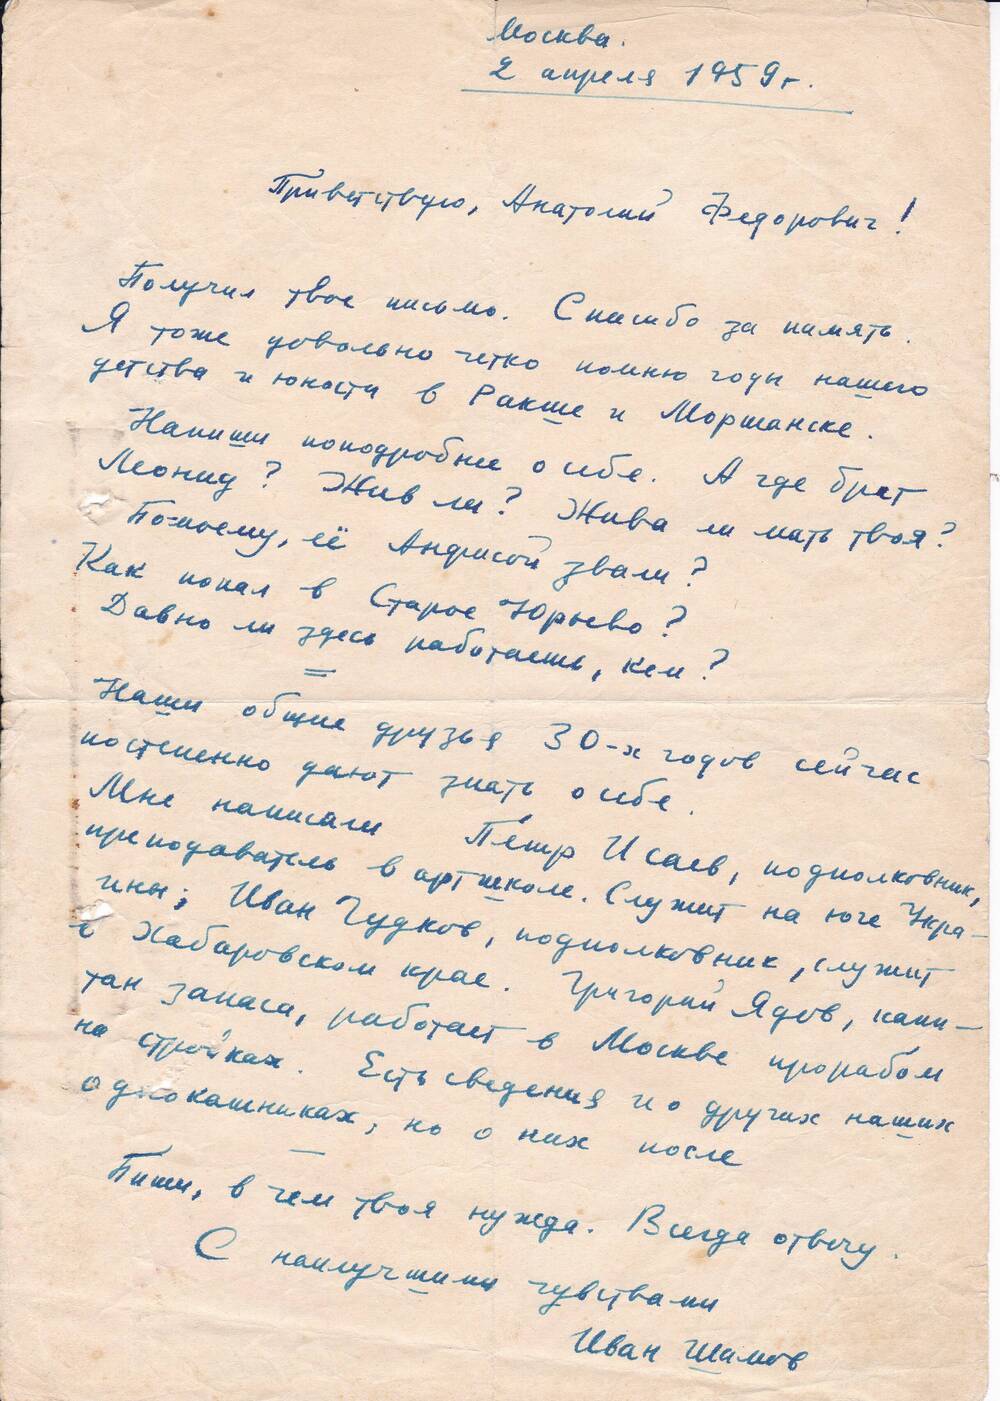 Москва.
2 апреля 1959 г.
Приветствую, Анатолий Федорович!
Получил твое письмо. Спасибо за память.
Я тоже довольно четко помню годы нашего
детства и юности в Ракше и Моршанске.
Напиши поподробнее о себе. А где брат
Леонид? Жив ли? Жива ли мать твоя?
По-моему, её Анфисой звали?
Как попал в Старое Юрьево?
Давно ли здесь работаешь, кем?
=
Наши общие друзья 30-х годов сейчас
постепенно дают знать о себе.
Мне написали Пётр Исаев, подполковник,
преподаватель в артшколе. Служит на юге Укра-
ины; Иван Чудков, подполковник, служит
в Хабаровском крае. Григорий Ядов, капи-
тан запаса, работает в Москве прорабом
на стройках. Есть сведения и о других наших
однокашниках, но о них после
—
Пиши, в чем твоя нужда. Всегда отвечу.
С наилучшими чувствами
Иван Шамов